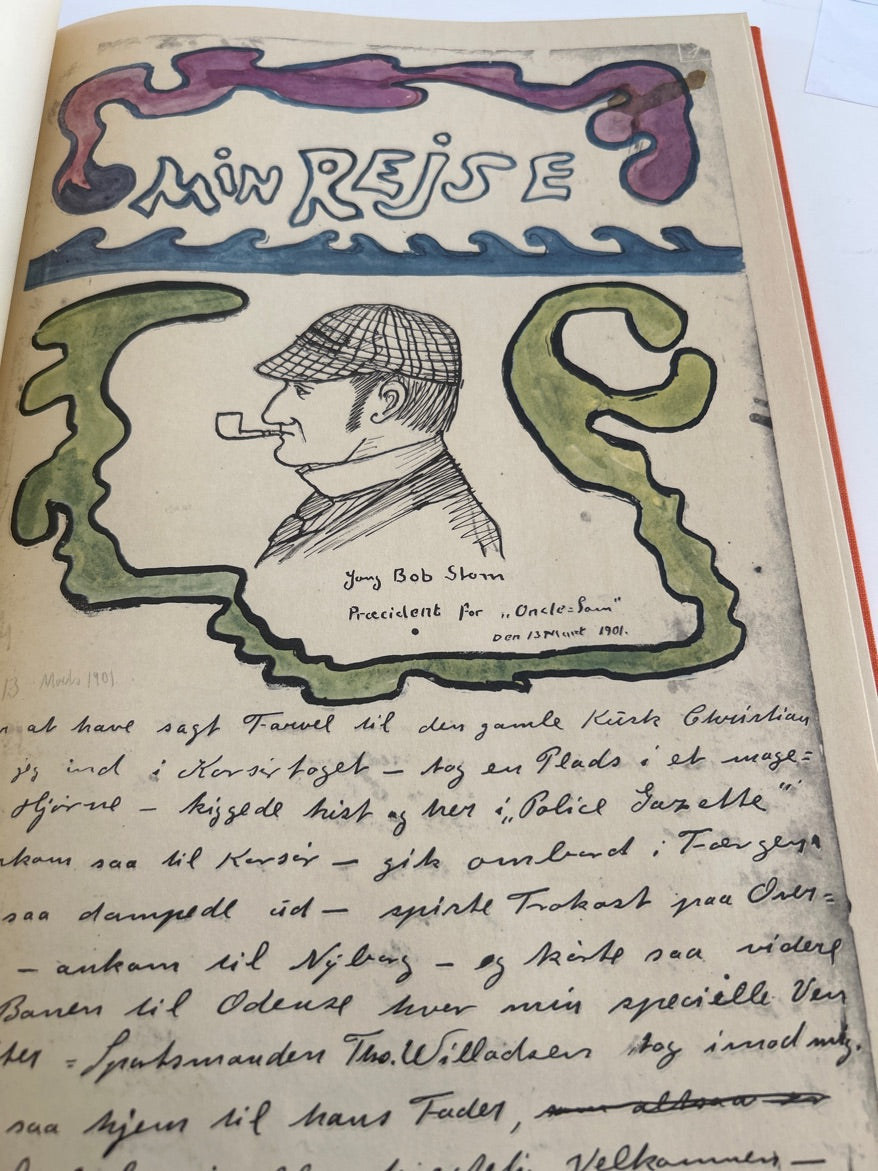 MIN REJSE
Yong Bob Storn
Præcident for „Oncle=Sam"
Den 13 Mart 1901.
13 Marts 1901
at have sagt Farvel til den gamle Kusk Christian
jeg ind i Korsørtoget – tog en Plads i et mage=
Hjørne – kiggede hist og her i „Police Gazette"
ankom saa til Korsør – gik ombord i Færgen
saa dampede ud – spiste Frokost paa Over=
– ankom til Nyborg – og kørte saa videre
Banen til Odense hvor min specielle Ven
=Sportsmanden Tho. Willadsen tog imod mig.
saa hjem til hans Fader, som altsaa er
Velkommen –